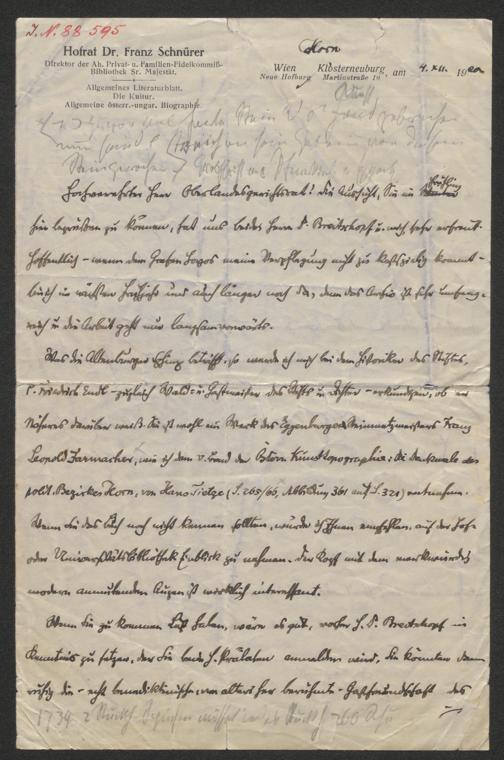 J. N. 88 595
Hofrat Dr. Franz Schnürer
Direktor der Ah. Privat- u. Familien-Fideikommiß-
Bibliothek Sr. Majestät.
Allgemeines Literaturblatt.
Die Kultur.
Allgemeine österr.-ungar. Biographie.
Horn
Wien Klosterneuburg
Neue Hofburg Martinstraße 16, am 4. XII. 1920
Hochverehrter Herr Oberlandesgerichtsrat! Die Aussicht, Sie im Frühling
hier begrüßen zu können, hat uns beide, Herrn D. Breitkopf u. mich sehr erfreut.
Hoffentlich – wenn dem Grafen Hoyos meine Verpflegung nicht zu kostspielig kommt –
bin ich im nächsten Frühjahr und auch länger noch da, denn das Archiv ist sehr umfang-
reich u. die Arbeit geht nur langsam vorwärts.
Was die Altenburger Sphinx betrifft, so werde ich mich bei dem Historiker des Stiftes,
P. Friedrich Endl – zugleich Wald- u. Gastmeister des Stifts u. Dichter – erkundigen, ob er
Näheres darüber weiß. Sie ist wohl ein Werk des Eggenburger Steinmetzmeisters Franz
Leopold Farmacher, wie ich dem V. Band der Österr. Kunsttopographie: Die Denkmale des
polit. Bezirkes Horn, von Hans Tietze (S. 265/66, Abbildung 361 auf S. 321) entnehme.
Wenn Sie das Buch noch nicht kennen sollten, würde ich Ihnen empfehlen, auf der Hof-
oder Universitätsbibliothek Einblick zu nehmen. Der Kopf mit dem merkwürdig
modern anmutenden Augen ist wirklich interessant.
Wenn Sie zu kommen Lust haben, wäre es gut, vorher H. D. Breitkopf in
Kenntnis zu setzen, der Sie beim H. Prälaten anmelden wird, Sie könnten dann
ruhig die – echt benediktinische, von altersher berühmte – Gastfreundschaft des
1734 2